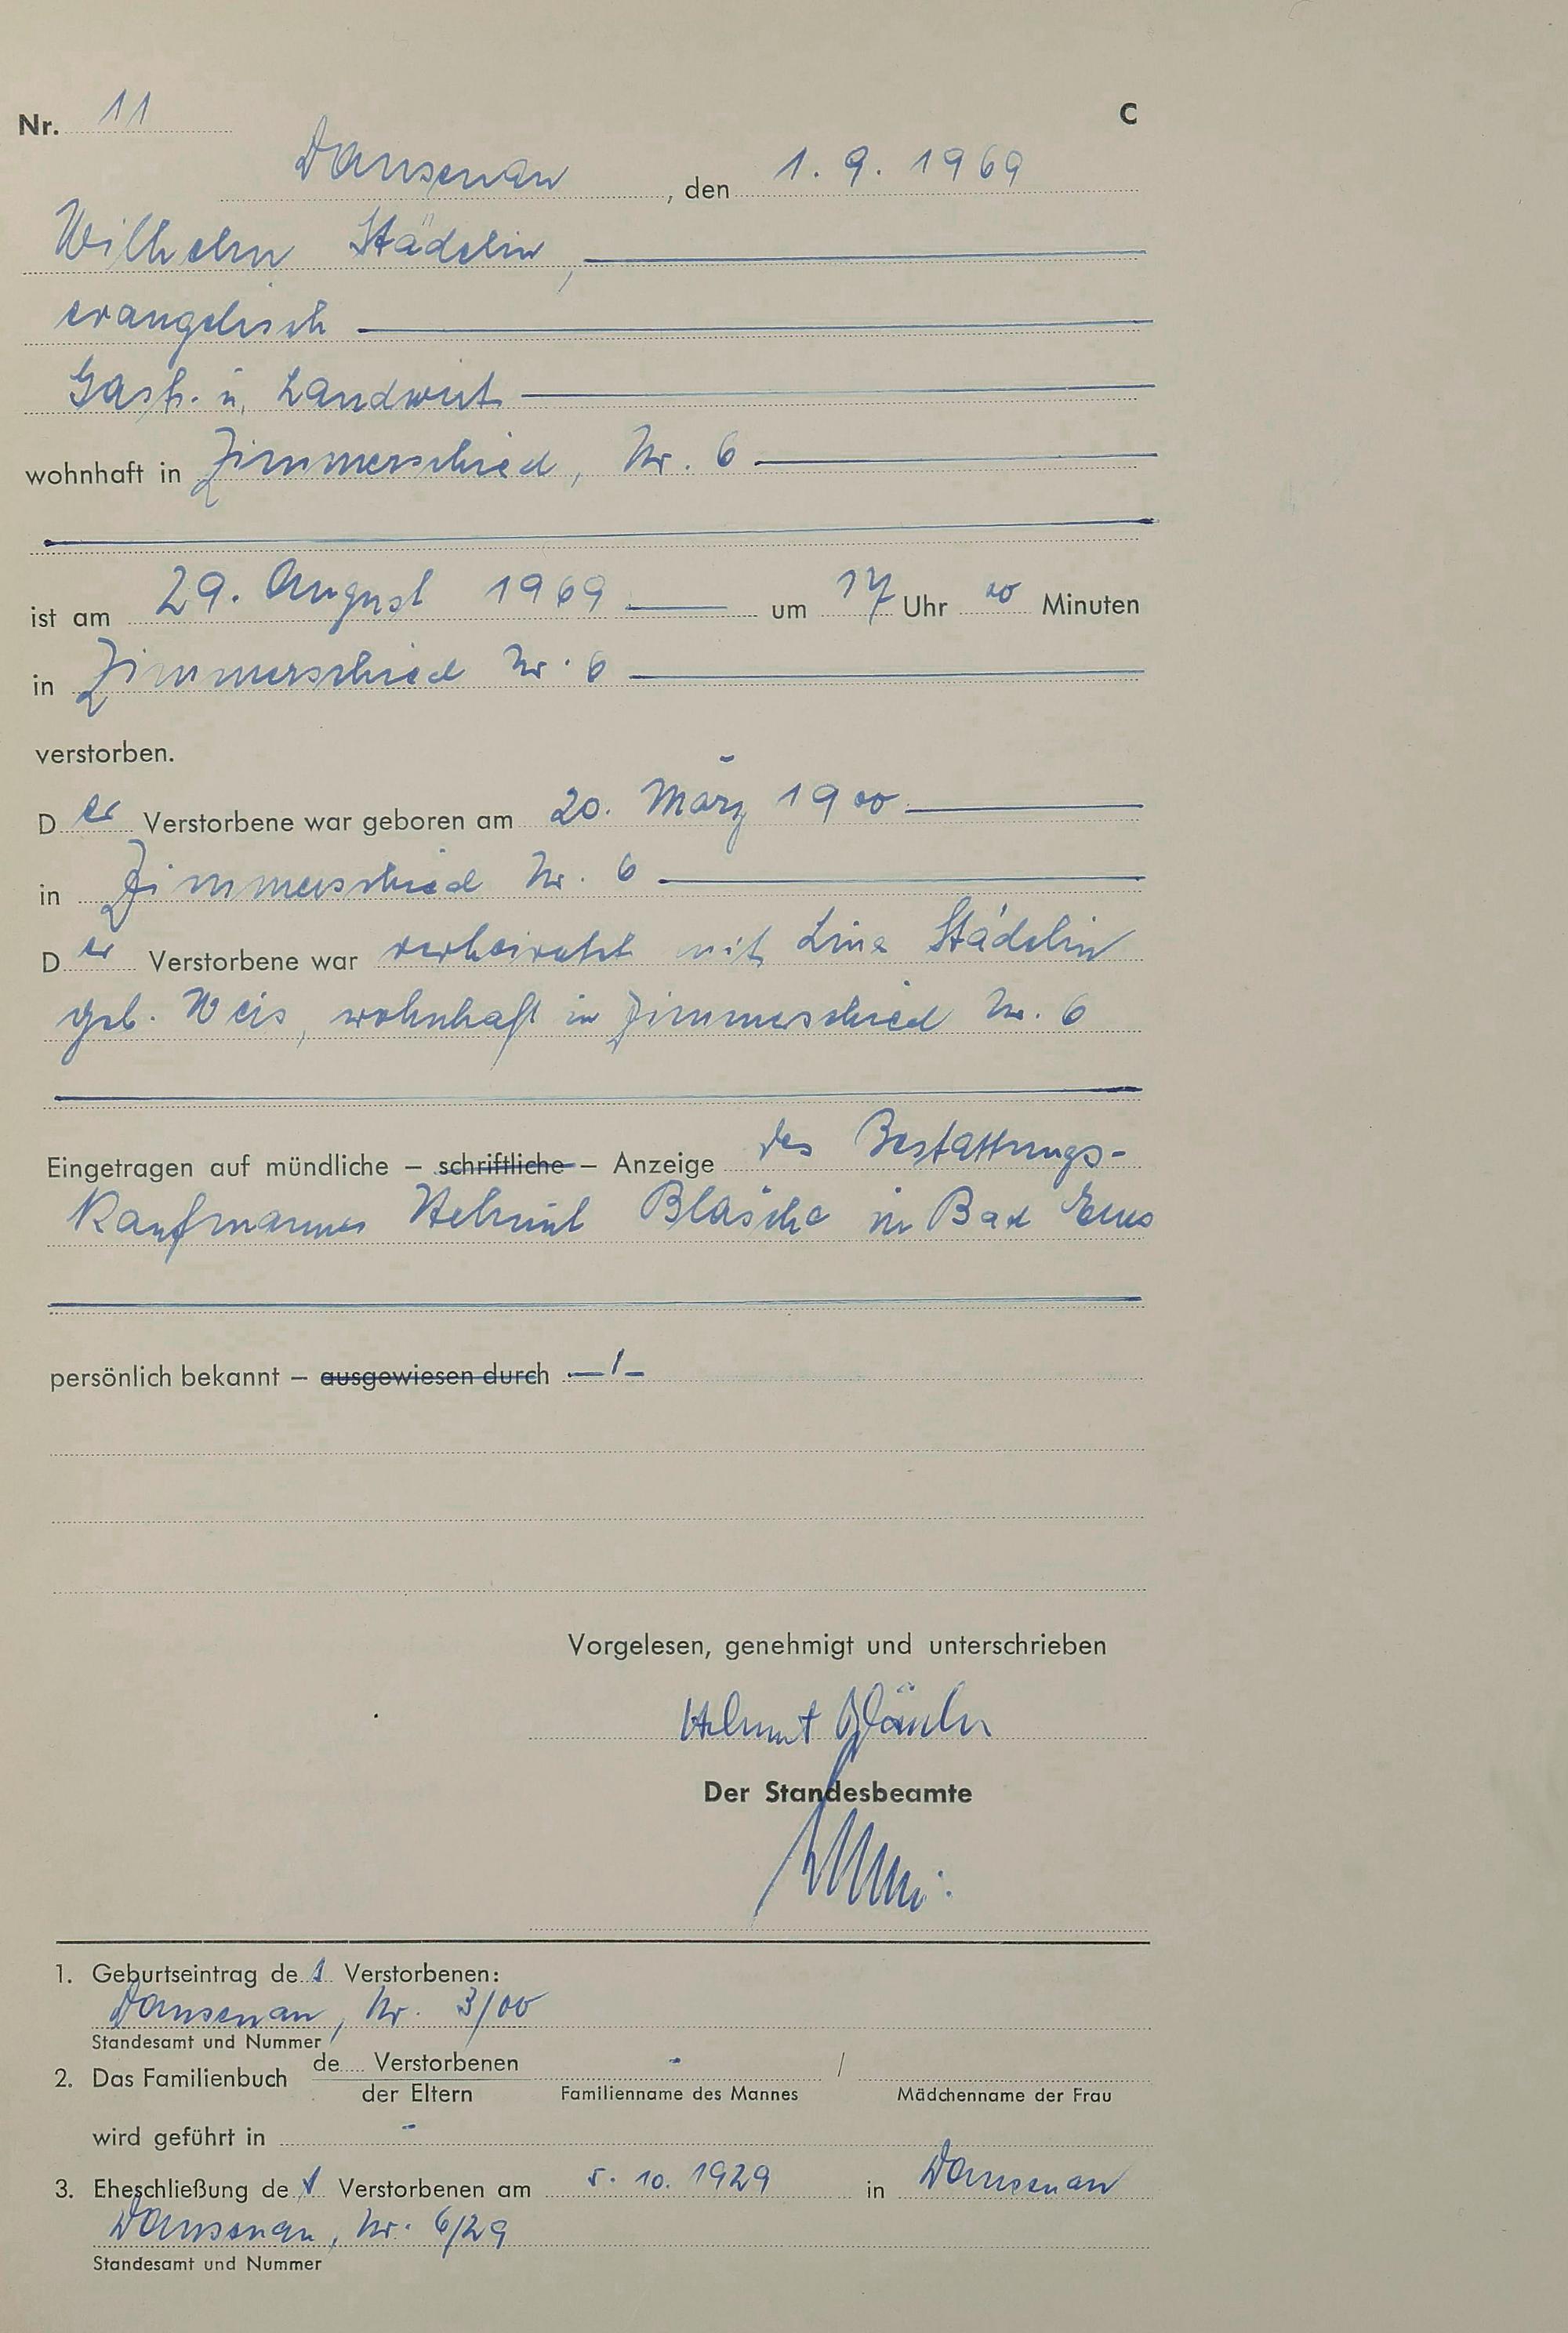 Nr. 11 C
Dausenau, den 1. 9. 1969
Wilhelm Städelin,
evangelisch
Gast- u. Landwirt
wohnhaft in Zimmerschied, Nr. 6
ist am 29. August 1969 um 17 Uhr 00 Minuten
in Zimmerschied Nr. 6
verstorben.
Der Verstorbene war geboren am 20. März 1900
in Zimmerschied Nr. 6
Der Verstorbene war verheiratet mit Lina Städelin
geb. Weis, wohnhaft in Zimmerschied Nr. 6
Eingetragen auf mündliche – schriftliche – Anzeige des Bestattungs-
Kaufmannes Helmut Bläsche in Bad Ems
persönlich bekannt – ausgewiesen durch —/—
Vorgelesen, genehmigt und unterschrieben
Helmut
Der Standesbeamte
1. Geburtseintrag des Verstorbenen:
Dausenau, Nr. 3/00
Standesamt und Nummer
2. Das Familienbuch de Verstorbenen - /
der Eltern Familienname des Mannes Mädchenname der Frau
wird geführt in -
3. Eheschließung des Verstorbenen am 5. 10. 1929 in Dausenau
Dausenau, Nr. 6/29
Standesamt und Nummer